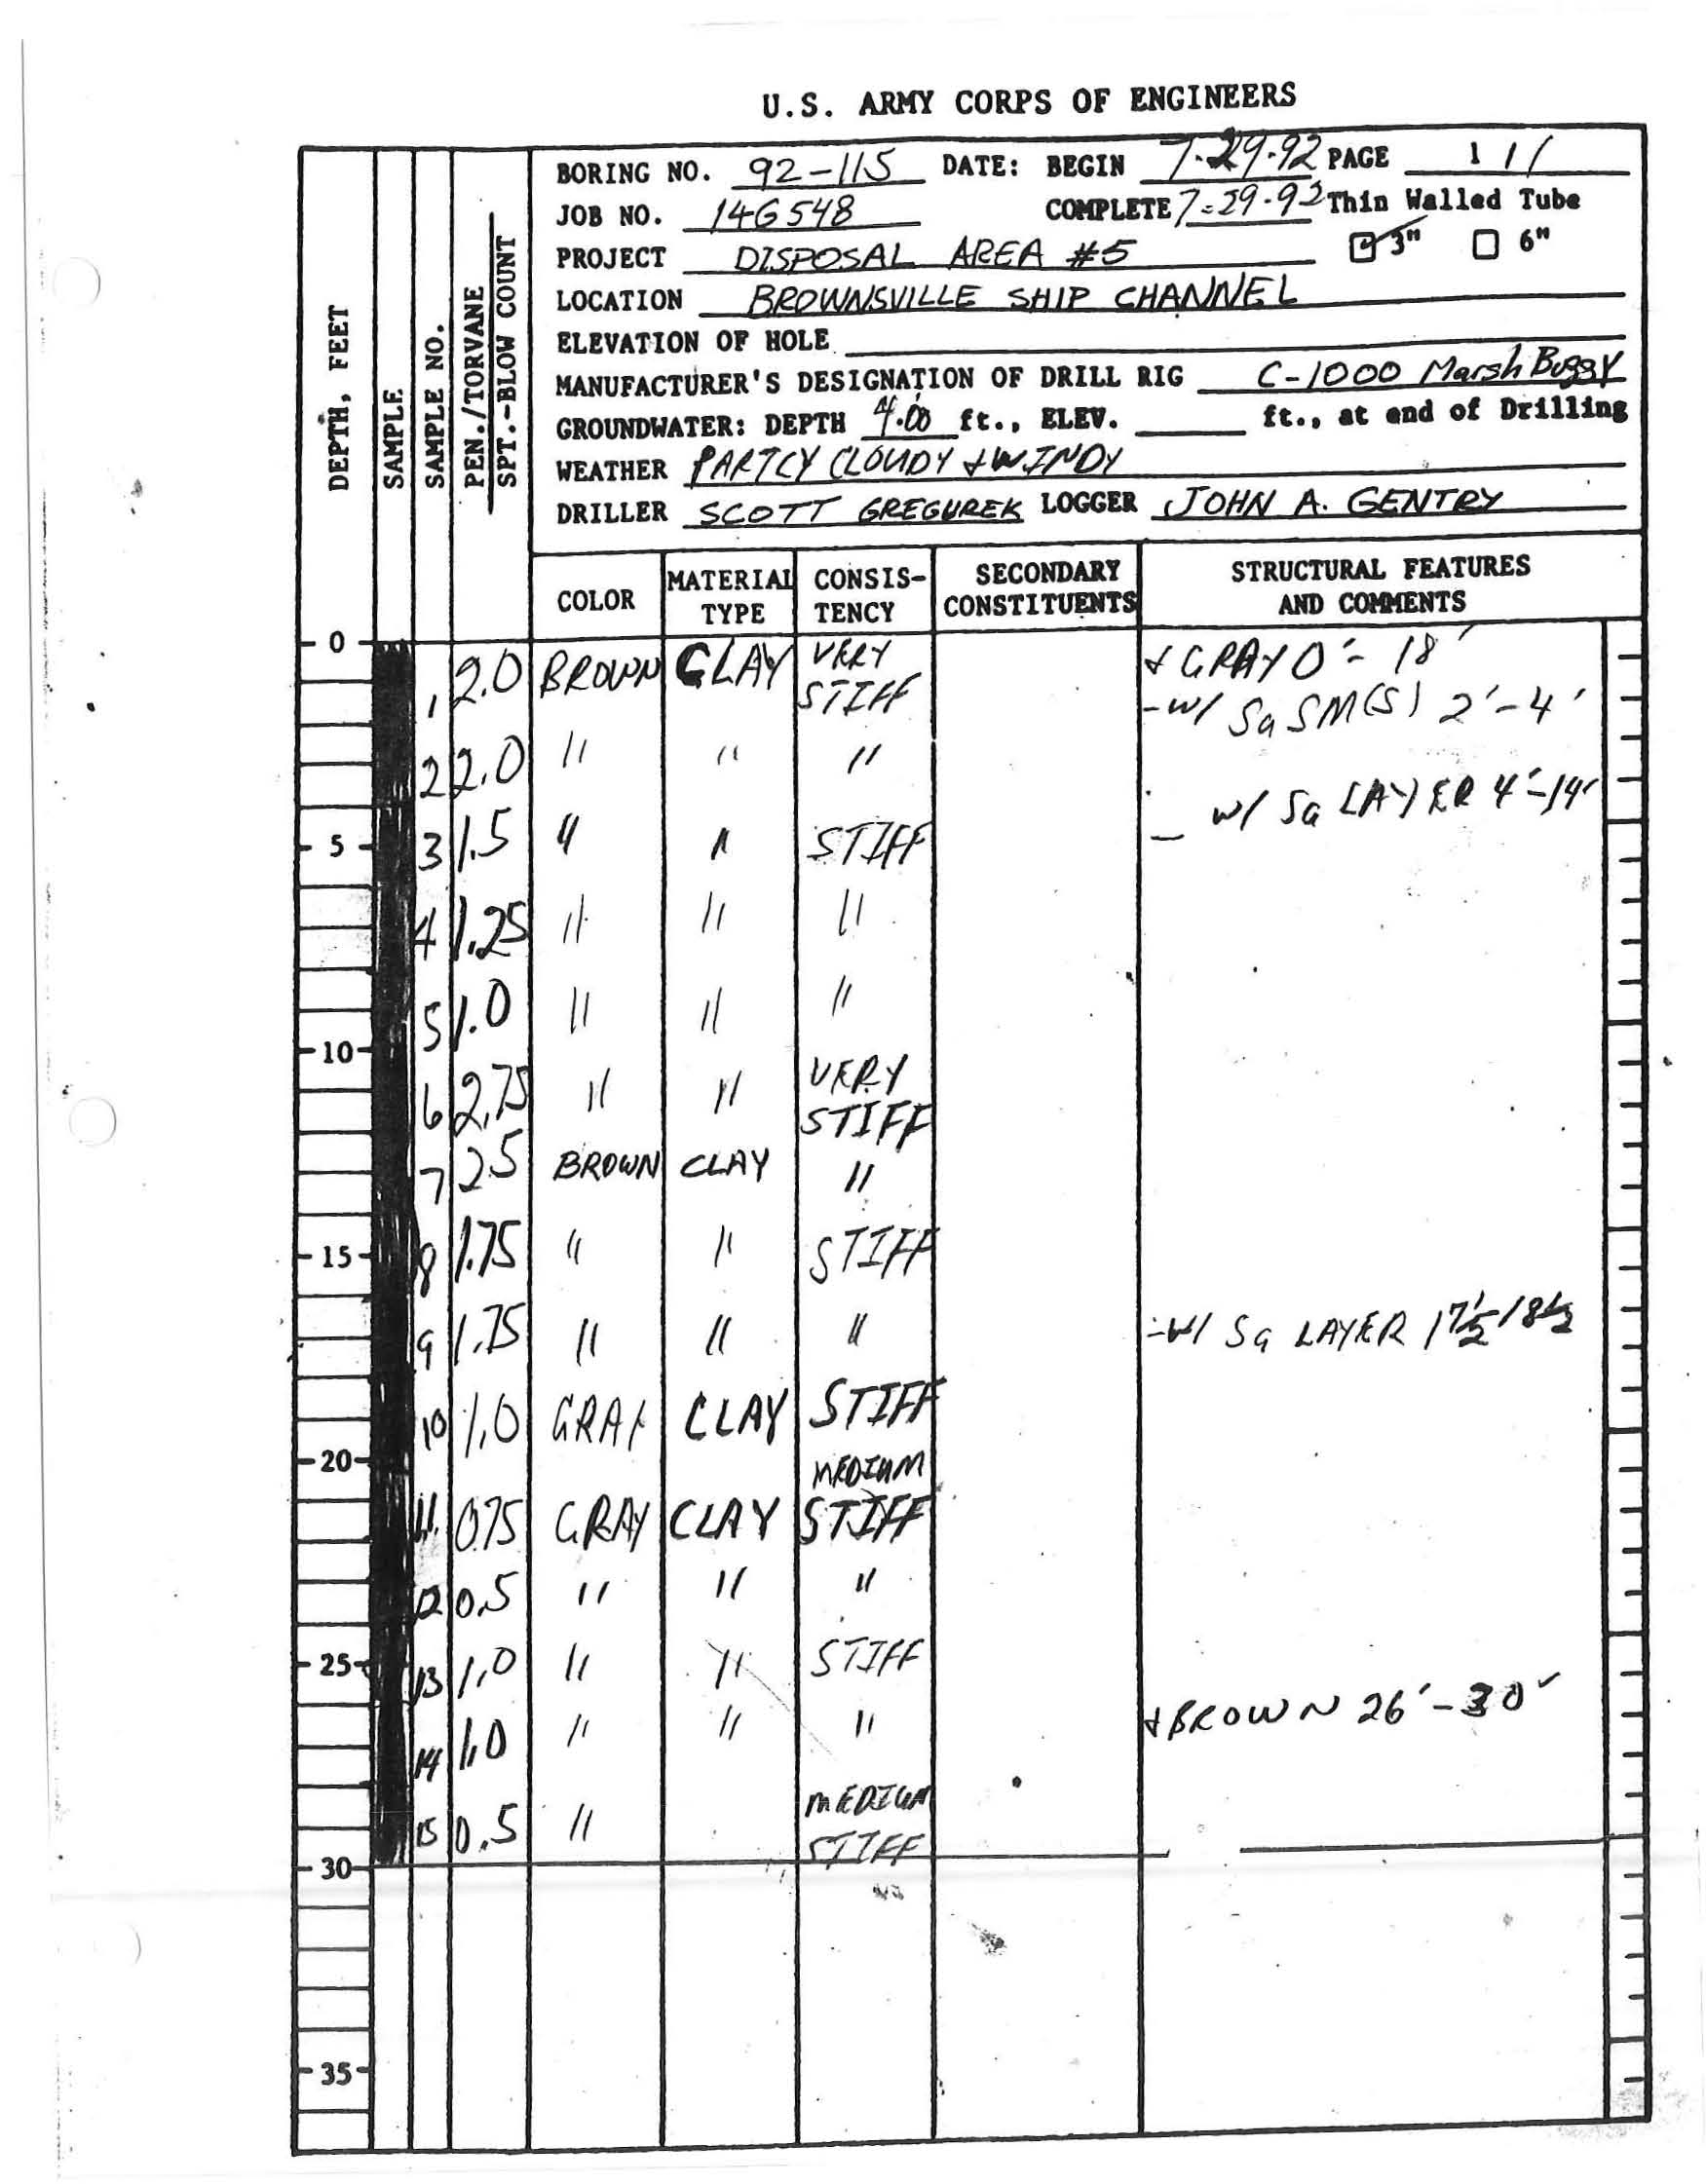 U.S. ARMY CORPS OF ENGINEERS
BORING NO. 92-115 DATE: BEGIN 7-29-92 PAGE 1 / 1
JOB NO. 14G548 COMPLETE 7-29-92 Thin Walled Tube
PROJECT DISPOSAL AREA #5 3" 6"
LOCATION BROWNSVILLE SHIP CHANNEL
ELEVATION OF HOLE
MANUFACTURER'S DESIGNATION OF DRILL RIG C-1000 Marsh Buggy
GROUNDWATER: DEPTH 4.00 ft., ELEV. ft., at end of Drilling
WEATHER PARTLY CLOUDY & WINDY
DRILLER SCOTT GREGUREK LOGGER JOHN A. GENTRY
DEPTH, FEET
SAMPLE
SAMPLE NO.
PEN./TORVANE
SPT.-BLOW COUNT
COLOR
MATERIAL TYPE
CONSIS-TENCY
SECONDARY CONSTITUENTS
STRUCTURAL FEATURES AND COMMENTS
0
1 2.0 BROWN CLAY VERY STIFF & GRAY 0'- 18'
-w/ Sa SM(S) 2'-4'
2 2.0 " " "
- w/ Sa LAYER 4'-14'
5 3 1.5 " " STIFF
4 1.25 " " "
5 1.0 " " "
10
6 2.75 " " VERY STIFF
7 2.5 BROWN CLAY "
15 8 1.75 " " STIFF
9 1.75 " " " -W/ Sa LAYER 17½'-18½
10 1.0 GRAY CLAY STIFF
20
11 0.75 GRAY CLAY MEDIUM STIFF
12 0.5 " " "
25 13 1.0 " " STIFF
14 1.0 " " " & BROWN 26'-30'
15 0.5 " MEDIUM STIFF
30
35